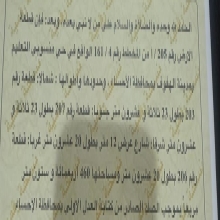 الحمد لله وحده والصلاة والسلام على من لا نبي بعده، وبعد: فإن قطعة
الارض رقم 205 / 1 من المخطط رقم 4 / 161 الواقع في حي منسوبي التعليم
بمدينة الهفوف بمحافظة الاحساء ، وحدودها واطوالها : شمالا: قطعة رقم
203 بطول 23 ثلاثة و عشرون متر جنوبا: قطعة رقم 207 بطول 23 ثلاثة و
عشرون متر شرقا: شارع عرض 12 متر بطول 20 عشرون متر غربا: قطعة
رقم 206 بطول 20 عشرون متر ومساحتها 460 أربعمائة و ستون متر
مربعا بموجب الصك الصادر من كتابة العدل الاولى بمحافظة الاحساء